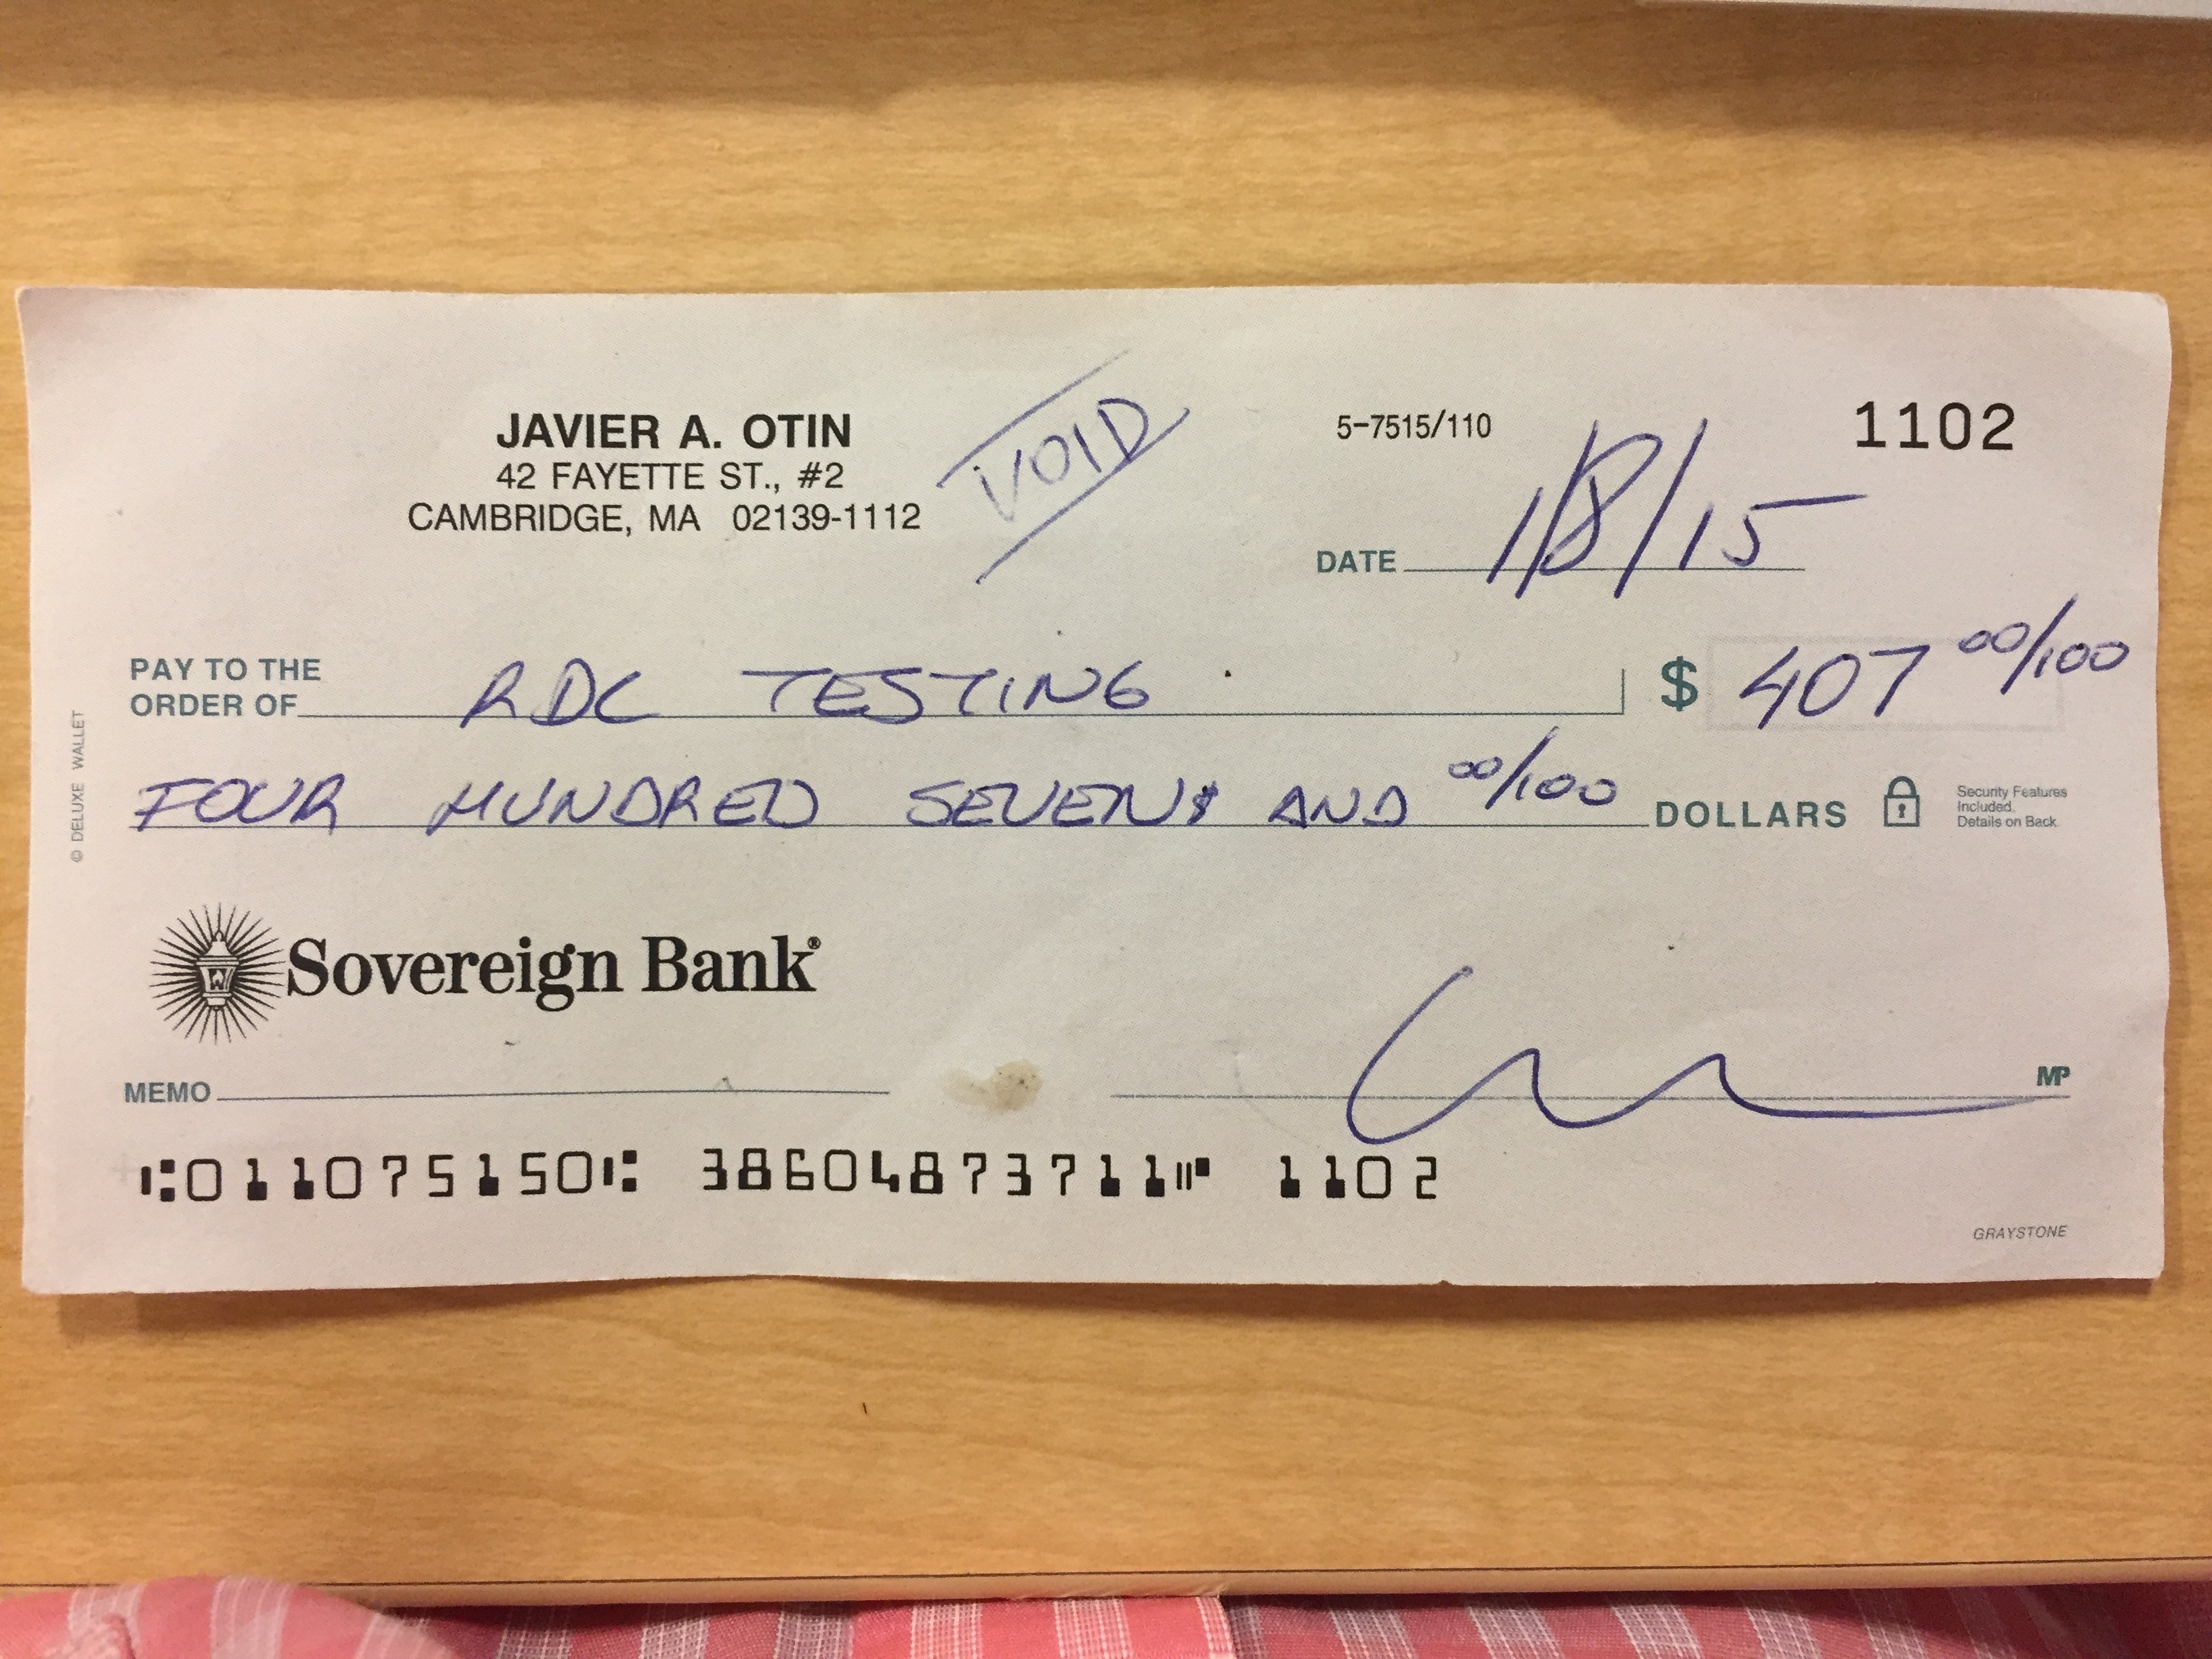 JAVIER A. OTIN
42 FAYETTE ST., #2
CAMBRIDGE, MA 02139-1112
VOID
5-7515/110
1102
DATE 1/8/15
PAY TO THE
ORDER OF RDC TESTING $ 407 00/100
FOUR HUNDRED SEVEN AND 00/100 DOLLARS
Security Features
Included.
Details on Back.
© DELUXE WALLET
Sovereign Bank®
MEMO
MP
⑆011075150⑆ 38604873711⑈ 1102
GRAYSTONE